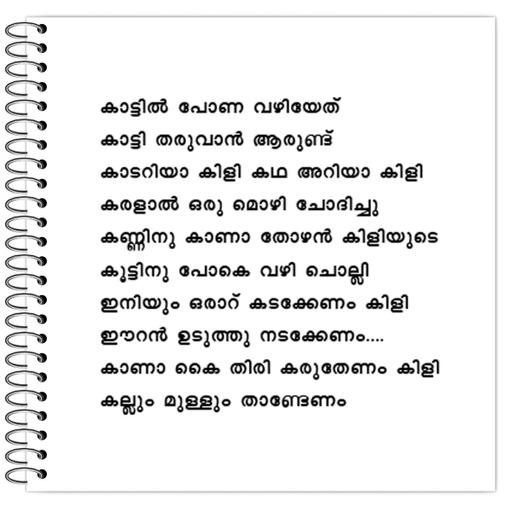 കാട്ടിൽ പോണ വഴിയേത്
കാട്ടി തരുവാൻ ആരുണ്ട്
കാടറിയാ കിളി കഥ അറിയാ കിളി
കരളാൽ ഒരു മൊഴി ചോദിച്ചു
കണ്ണിനു കാണാ തോഴൻ കിളിയുടെ
കൂട്ടിനു പോകെ വഴി ചൊല്ലി
ഇനിയും ഒരാറ് കടക്കേണം കിളി
ഈറൻ ഉടുത്തു നടക്കേണം....
കാണാ കൈ തിരി കരുതേണം കിളി
കല്ലും മുള്ളും താണ്ടേണം